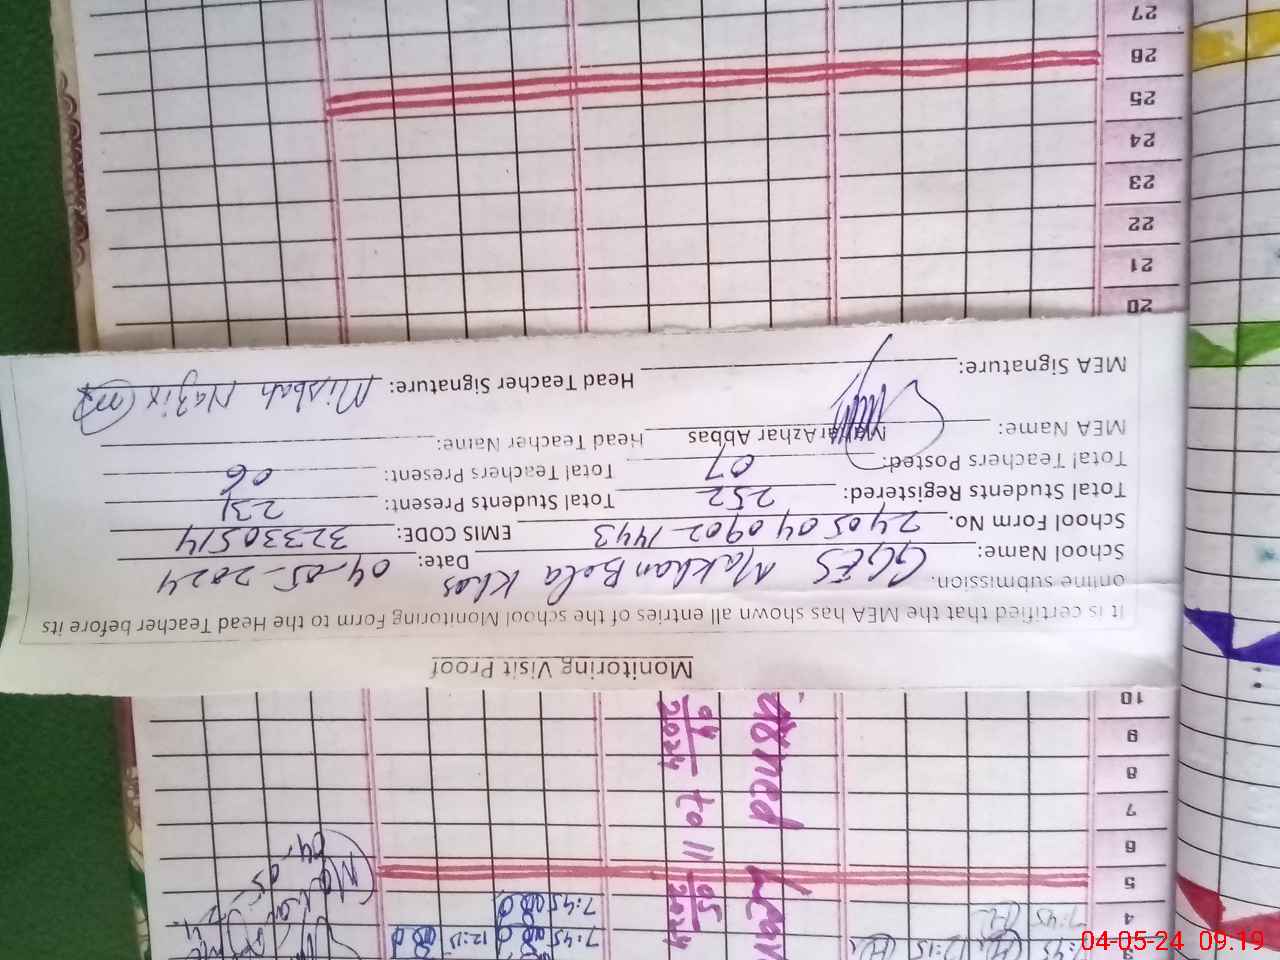 3 7:45 12:15 7:45 12:15
4 7:45 7:45
5
6
7
8
9
10
04/2024 to 11 05/2024
04-05
Monitoring Visit Proof
It is certified that the MEA has shown all entries of the school Monitoring Form to the Head Teacher before its
online submission.
School Name: GGES Makhan Bela Khas Date: 04-05-2024
School Form No. 240504 0902-1443 EMIS CODE: 32330514
Total Students Registered: 252 Total Students Present: 231
Total Teachers Posted: 07 Total Teachers Present: 06
MEA Name: Azhar Abbas Head Teacher Name:
MEA Signature: Head Teacher Signature: Misbah Nazir
20
21
22
23
24
25
26
27
04-05-24 09:19